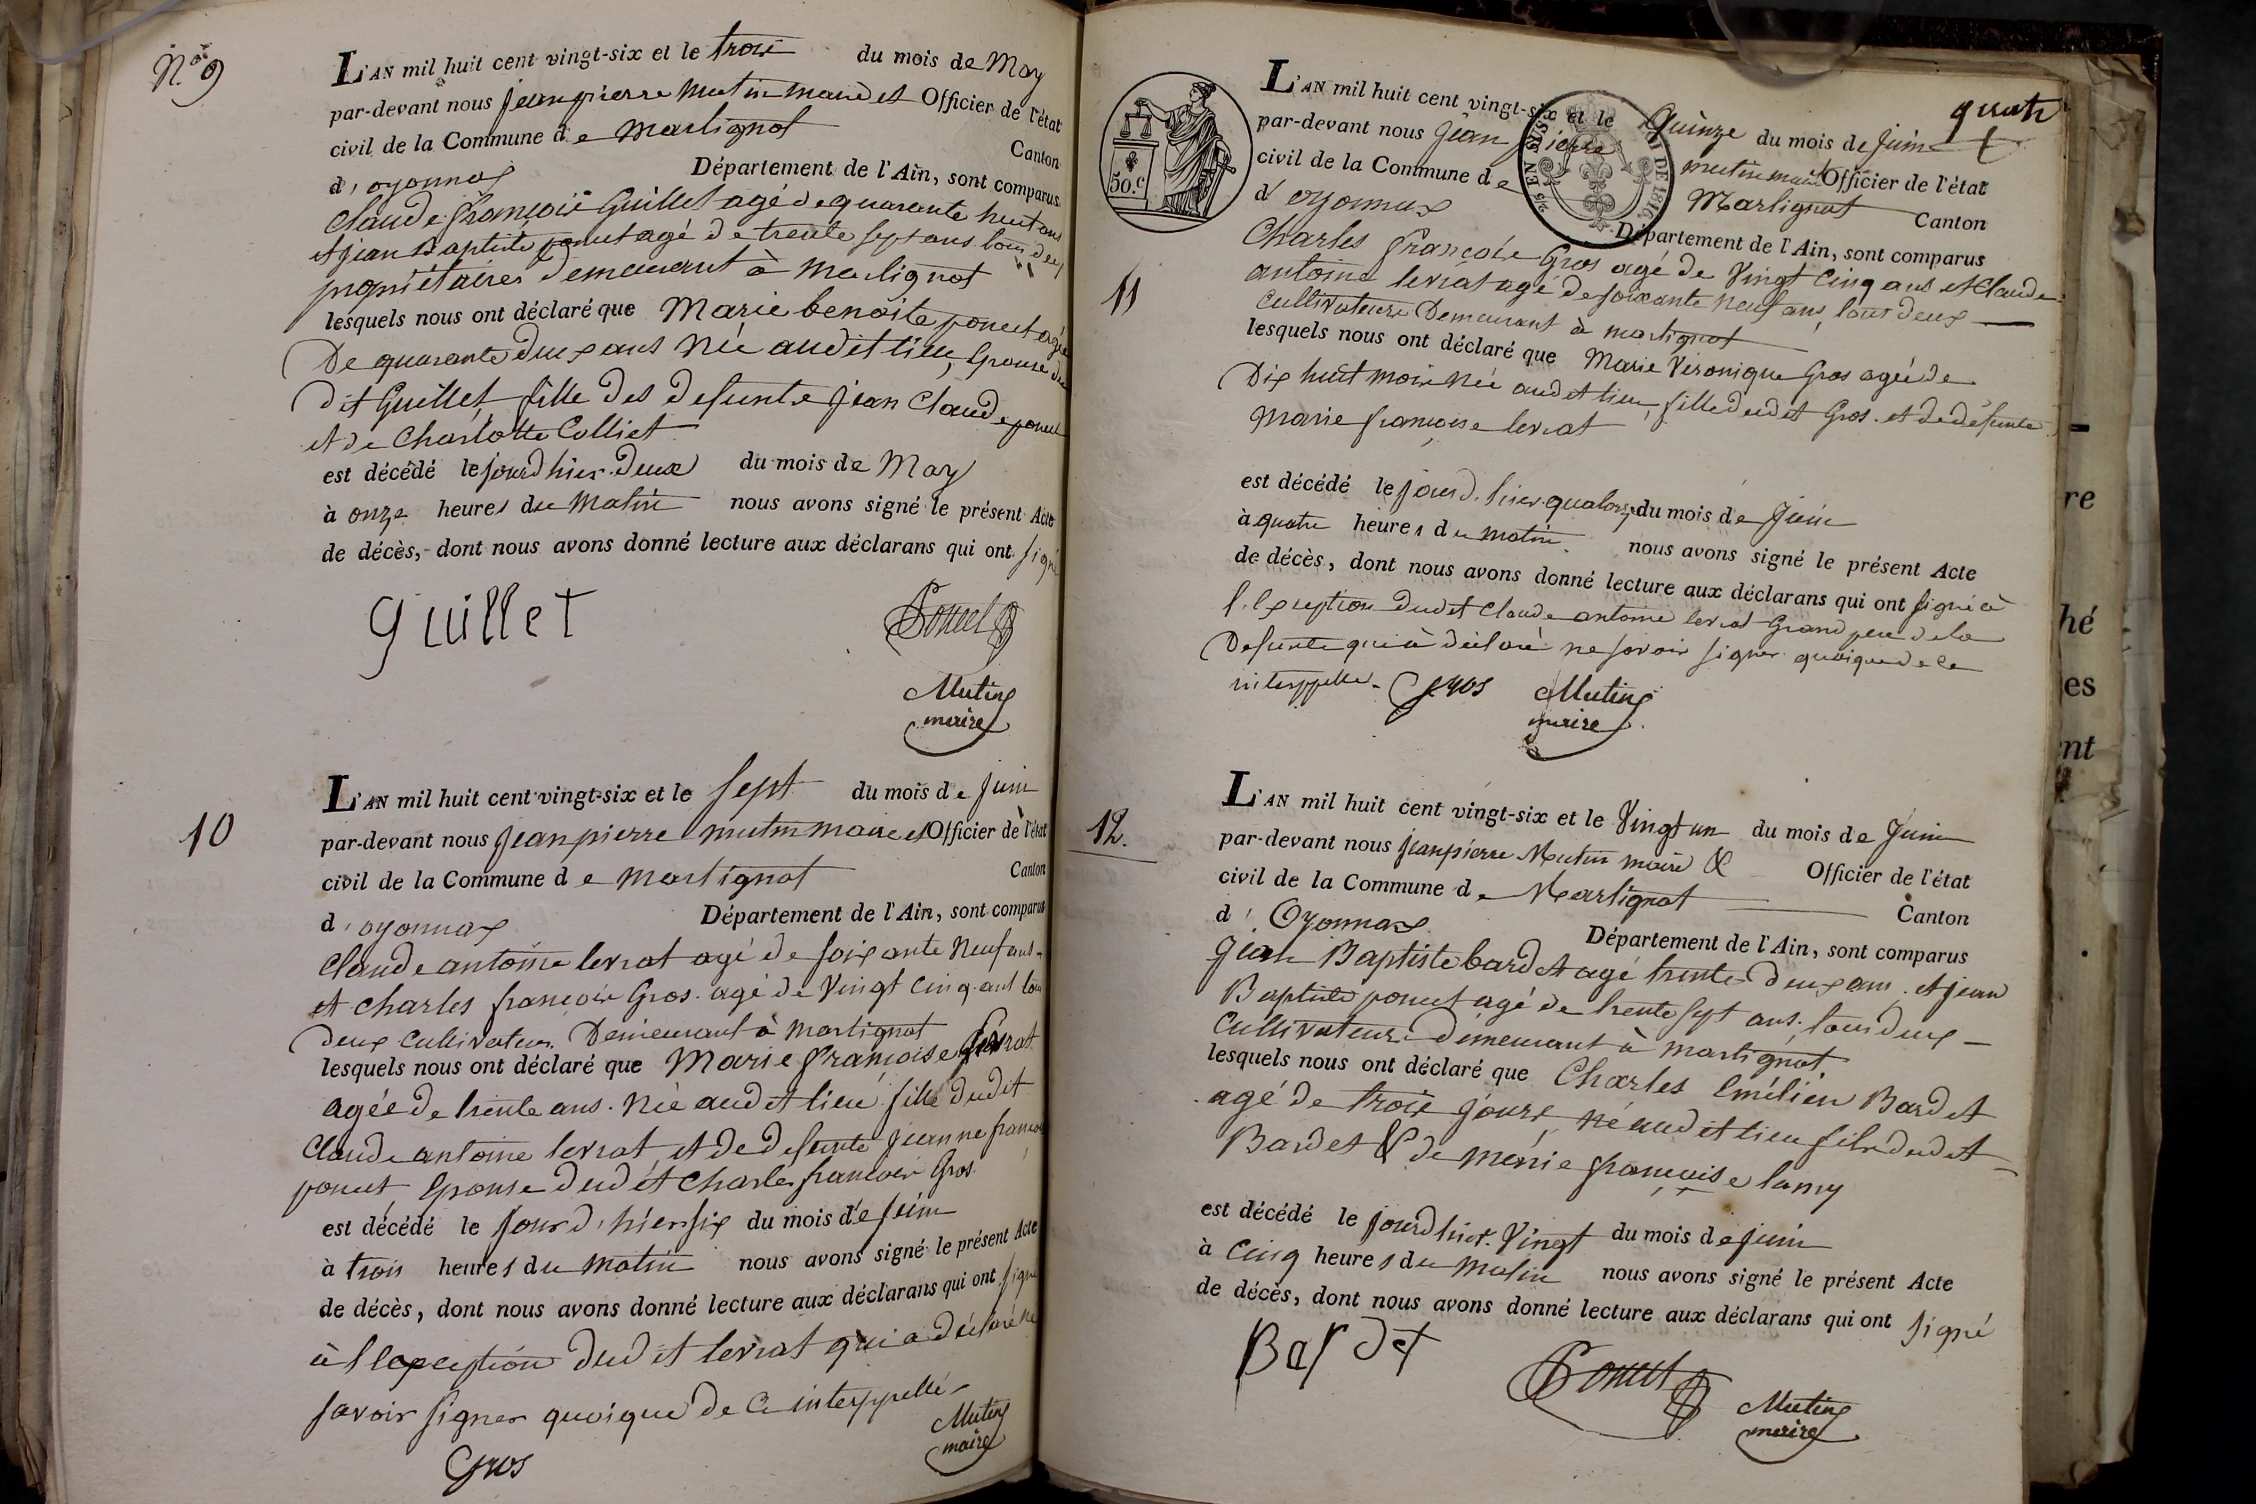 N.° 9
L'AN mil huit cent vingt-six et le trois du mois de May
par-devant nous jean pierre mutin maire et Officier de l'état
civil de la Commune de Martignat Canton
d'oyonnax Département de l'Ain, sont comparus
Claude françois Guillet agé de quarante huit ans
et jean Baptiste poncet agé de trente sept ans tous deux
propriétaires demeurant à Martignat
lesquels nous ont déclaré que Marie benoite poncet agée
De quarante deux ans Née audit lieu, Epouse du
dit Guillet, fille des defunts jean Claude poncet
et de Charlotte Colliet
est décédé le jourd hier deux du mois de May
à onze heures du Matin nous avons signé le présent Acte
de décès, dont nous avons donné lecture aux déclarans qui ont signé
guillet Poncet
Mutin
maire
10
L'AN mil huit cent vingt-six et le sept du mois de juin
par-devant nous jean pierre mutin maire et Officier de l'état
civil de la Commune de martignat Canton
d'oyonnax Département de l'Ain, sont comparus
Claude antoine levrat agé de soixante Neuf ans
et Charles françois Gros agé de Vingt Cinq ans tous
deux Cultivateurs Demeurant à Martignat
lesquels nous ont déclaré que Marie françoise levrat
agée de trente ans. Née audit lieu fille dudit
Claude antoine levrat et de defunte jeanne françoise
poncet, Epouse dudit Charles françois Gros
est décédé le jour d'hier six du mois de juin
à trois heures du Matin nous avons signé le présent Acte
de décès, dont nous avons donné lecture aux déclarans qui ont signé
à l'exception dudit levrat qui a déclaré ne
savoir signer quoique de ce interppellé
Gros
Mutin
maire
quatre
50.c
25 EN SUS
LOI DE 1816.
11
L'AN mil huit cent vingt-six et le Quinze du mois de juin
par-devant nous jean pierre mutin maire Officier de l'état
civil de la Commune de Martignat Canton
d'oyonnax Département de l'Ain, sont comparus
Charles françois Gros agé de Vingt Cinq ans et Claude
antoine levrat agé de soixante neuf ans, tous deux
Cultivateurs Demeurant à martignat
lesquels nous ont déclaré que Marie Véronique Gros agée de
Dix huit mois Née audit lieu, fille dudit Gros et de defunte
Marie françoise levrat
est décédé le jourd'hier quatorze du mois de juin
à quatre heures du matin nous avons signé le présent Acte
de décès, dont nous avons donné lecture aux déclarans qui ont signé à
l'Exception dudit Claude antoine levrat Grand pere de la
Defunte qui à déclaré ne savoir signer quoique de ce
interppellé. Gros Mutin
maire
12.
L'AN mil huit cent vingt-six et le Vingt un du mois de Juin
par-devant nous jean pierre Mutin maire & Officier de l'état
civil de la Commune de Martignat Canton
d'Oyonnax Département de l'Ain, sont comparus
jean Baptiste bardet agé trente deux ans et jean
Baptiste poncet agé de trente sept ans, tous deux
Cultivateurs demeurant à martignat
lesquels nous ont déclaré que Charles Emélien Bardet
agé de trois jours, né audit lieu fils dudit
Bardet & de marie françoise lamy
est décédé le jourd hier Vingt du mois de juin
à Cinq heures du Matin nous avons signé le présent Acte
de décès, dont nous avons donné lecture aux déclarans qui ont signé
Bardet Poncet Mutin
maire
re
hé
es
nt